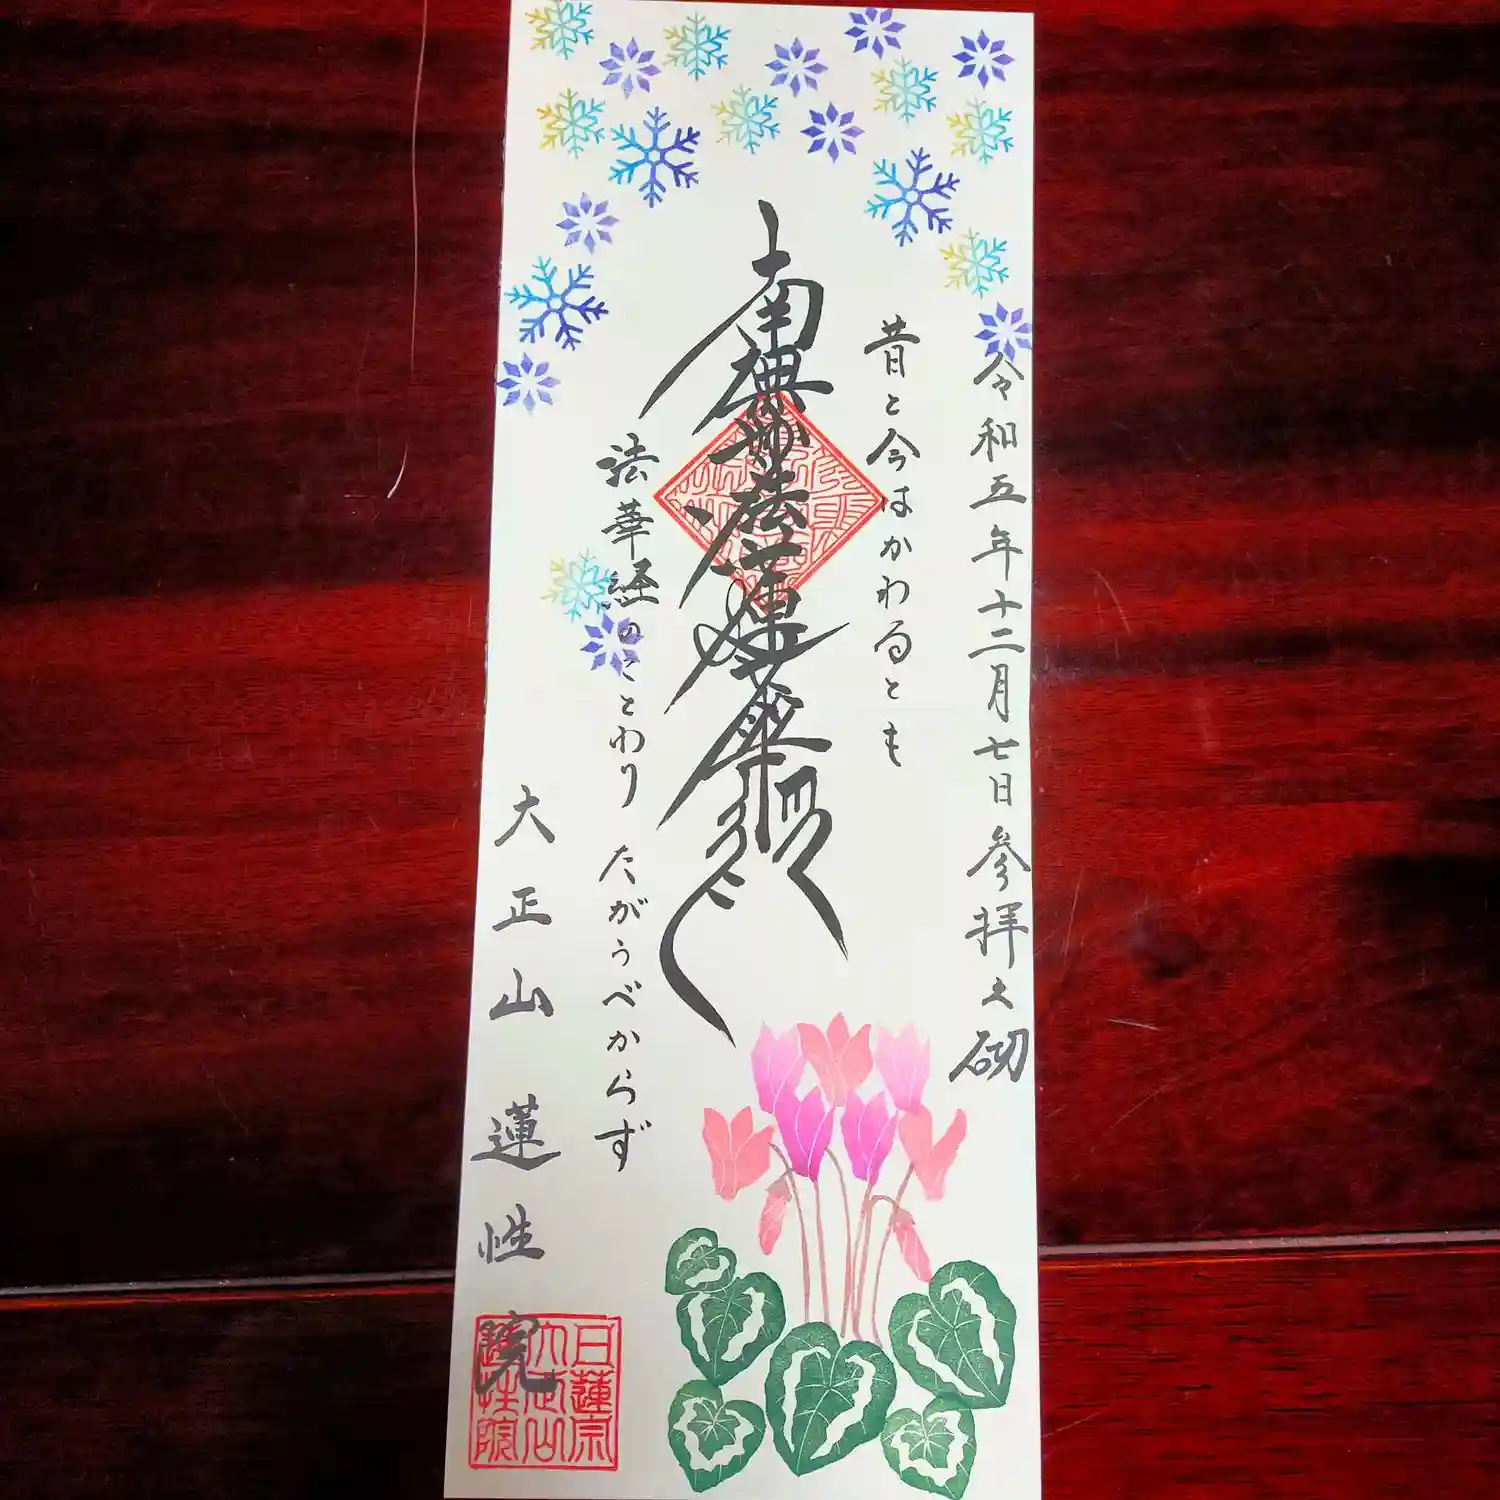 令和五年十二月七日参拝之砌
昔と今はかわるとも
南無妙法蓮華経
法華経のことわり たがうべからず
大正山 蓮性院
日蓮宗
大正山
蓮性院